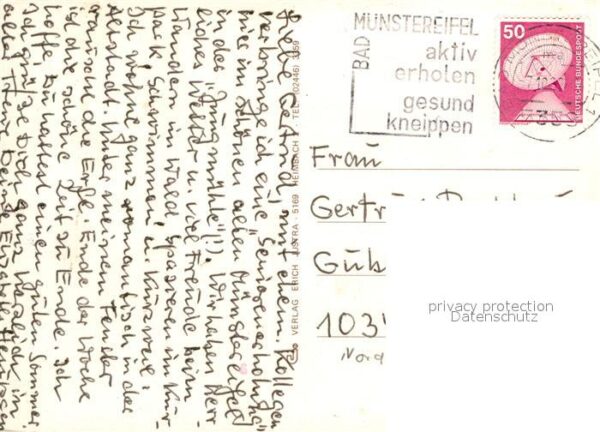 Liebe Gertrud, mit einem Kollegen
verbringe ich eine "Seniorenerholung"
hier im schönen alten Münstereifel
in der "Jungmühle"(!). Wir haben herr
liches Wetter u. viel Freude beim
Wandern im Wald, spazieren im Kur
park, Schwimmen u. Kurzweil.
Ich wohne ganz romantisch in der
Altstadt. Unter meinem Fenster
rauscht die Erft. Ende der Woche
ist die schöne Zeit zu Ende. Ich
hoffe, Du hattest einen guten Sommer.
Ich grüße Dich ganz herzlich in
alter Treue Deine Elisabeth
VERLAG ERICH JUSTRA · 5169 HEIMBACH · TEL. (02446)
BAD
MÜNSTEREIFEL
aktiv
erholen
gesund
kneippen
50
DEUTSCHE BUNDESPOST
Frau
Gertr
Gub
103
Nord
privacy protection
Datenschutz